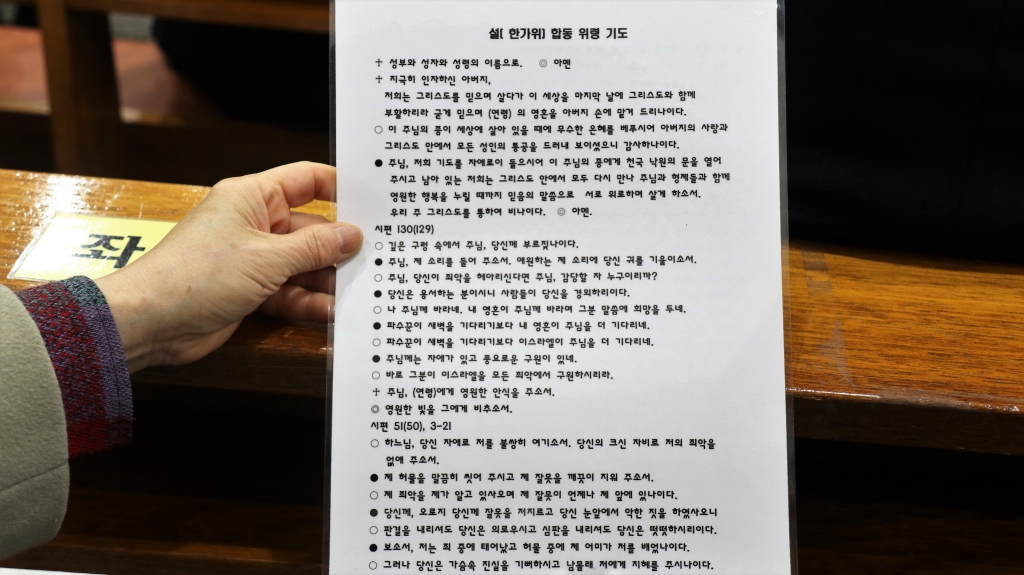 설( 한가위) 합동 위령 기도
✝ 성부와 성자와 성령의 이름으로. ◎ 아멘
✝ 지극히 인자하신 아버지,
저희는 그리스도를 믿으며 살다가 이 세상을 마지막 날에 그리스도와 함께
부활하리라 굳게 믿으며 (연령) 의 영혼을 아버지 손에 맡겨 드리나이다.
○ 이 주님의 종이 세상에 살아 있을 때에 무수한 은혜를 베푸시어 아버지의 사랑과
그리스도 안에서 모든 성인의 통공을 드러내 보이셨으니 감사하나이다.
● 주님, 저희 기도를 자애로이 들으시어 이 주님의 종에게 천국 낙원의 문을 열어
주시고 남아 있는 저희는 그리스도 안에서 모두 다시 만나 주님과 형제들과 함께
영원한 행복을 누릴 때까지 믿음의 말씀으로 서로 위로하며 살게 하소서.
우리 주 그리스도를 통하여 비나이다. ◎ 아멘.
시편 130(129)
○ 깊은 구렁 속에서 주님, 당신께 부르짖나이다.
● 주님, 제 소리를 들어 주소서. 애원하는 제 소리에 당신 귀를 기울이소서.
○ 주님, 당신이 죄악을 헤아리신다면 주님, 감당할 자 누구이리까?
● 당신은 용서하는 분이시니 사람들이 당신을 경외하리이다.
○ 나 주님께 바라네. 내 영혼이 주님께 바라며 그분 말씀에 희망을 두네.
● 파수꾼이 새벽을 기다리기보다 내 영혼이 주님을 더 기다리네.
○ 파수꾼이 새벽을 기다리기보다 이스라엘이 주님을 더 기다리네.
● 주님께는 자애가 있고 풍요로운 구원이 있네.
○ 바로 그분이 이스라엘을 모든 죄악에서 구원하시리라.
✝ 주님, (연령)에게 영원한 안식을 주소서.
◎ 영원한 빛을 그에게 비추소서.
시편 51(50), 3-21
○ 하느님, 당신 자애로 저를 불쌍히 여기소서. 당신의 크신 자비로 저의 죄악을
없애 주소서.
● 제 허물을 말끔히 씻어 주시고 제 잘못을 깨끗이 지워 주소서.
○ 제 죄악을 제가 알고 있사오며 제 잘못이 언제나 제 앞에 있나이다.
● 당신께, 오로지 당신께 잘못을 저지르고 당신 눈앞에서 악한 짓을 하였사오니
○ 판결을 내리셔도 당신은 의로우시고 심판을 내리셔도 당신은 떳떳하시리이다.
● 보소서, 저는 죄 중에 태어났고 허물 중에 제 어미가 저를 배었나이다.
○ 그러나 당신은 가슴속 진실을 기뻐하시고 남몰래 저에게 지혜를 주시나이다.
좌